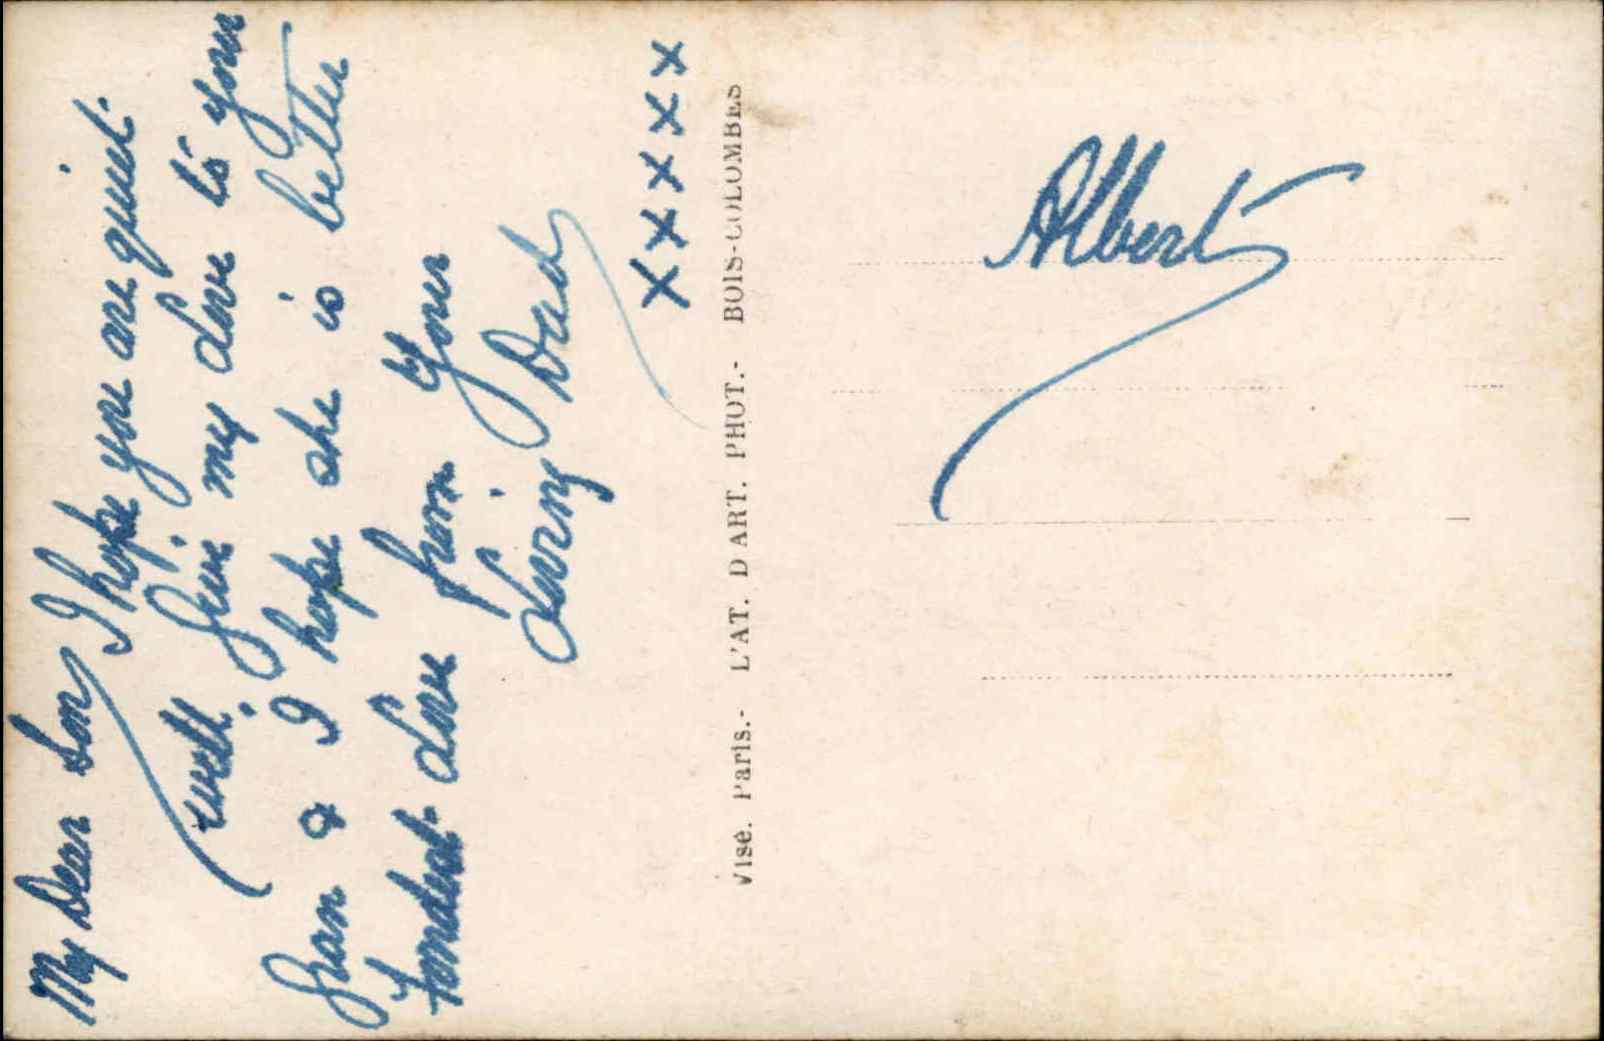 My Dear Son
I hope you are quiet
well. Give my Love to your
Gran & I hope she is better
Fondest Love from Your
Loving Dad
x x x x x
Visé. Paris.- L'AT. D'ART. PHOT.- BOIS-COLOMBES
Albert